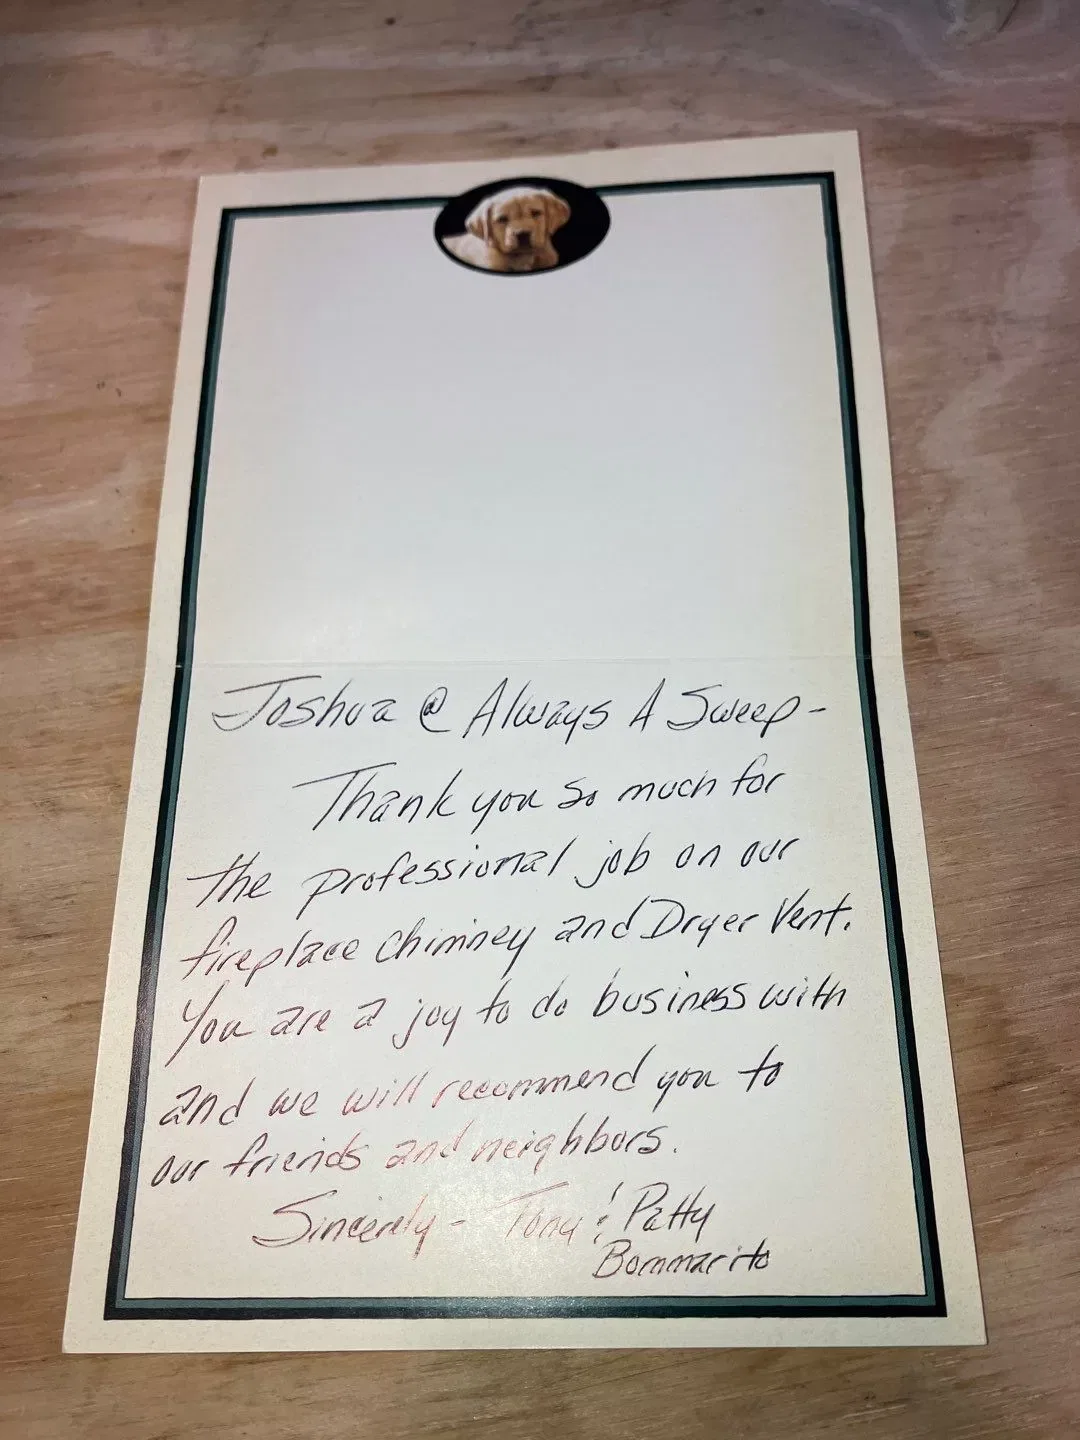 Joshua @ Always A Sweep -
Thank you so much for
the professional job on our
fireplace chimney and Dryer Vent.
You are a joy to do business with
and we will recommend you to
our friends and neighbors.
Sincerely - Tony & Patty
Bommarito